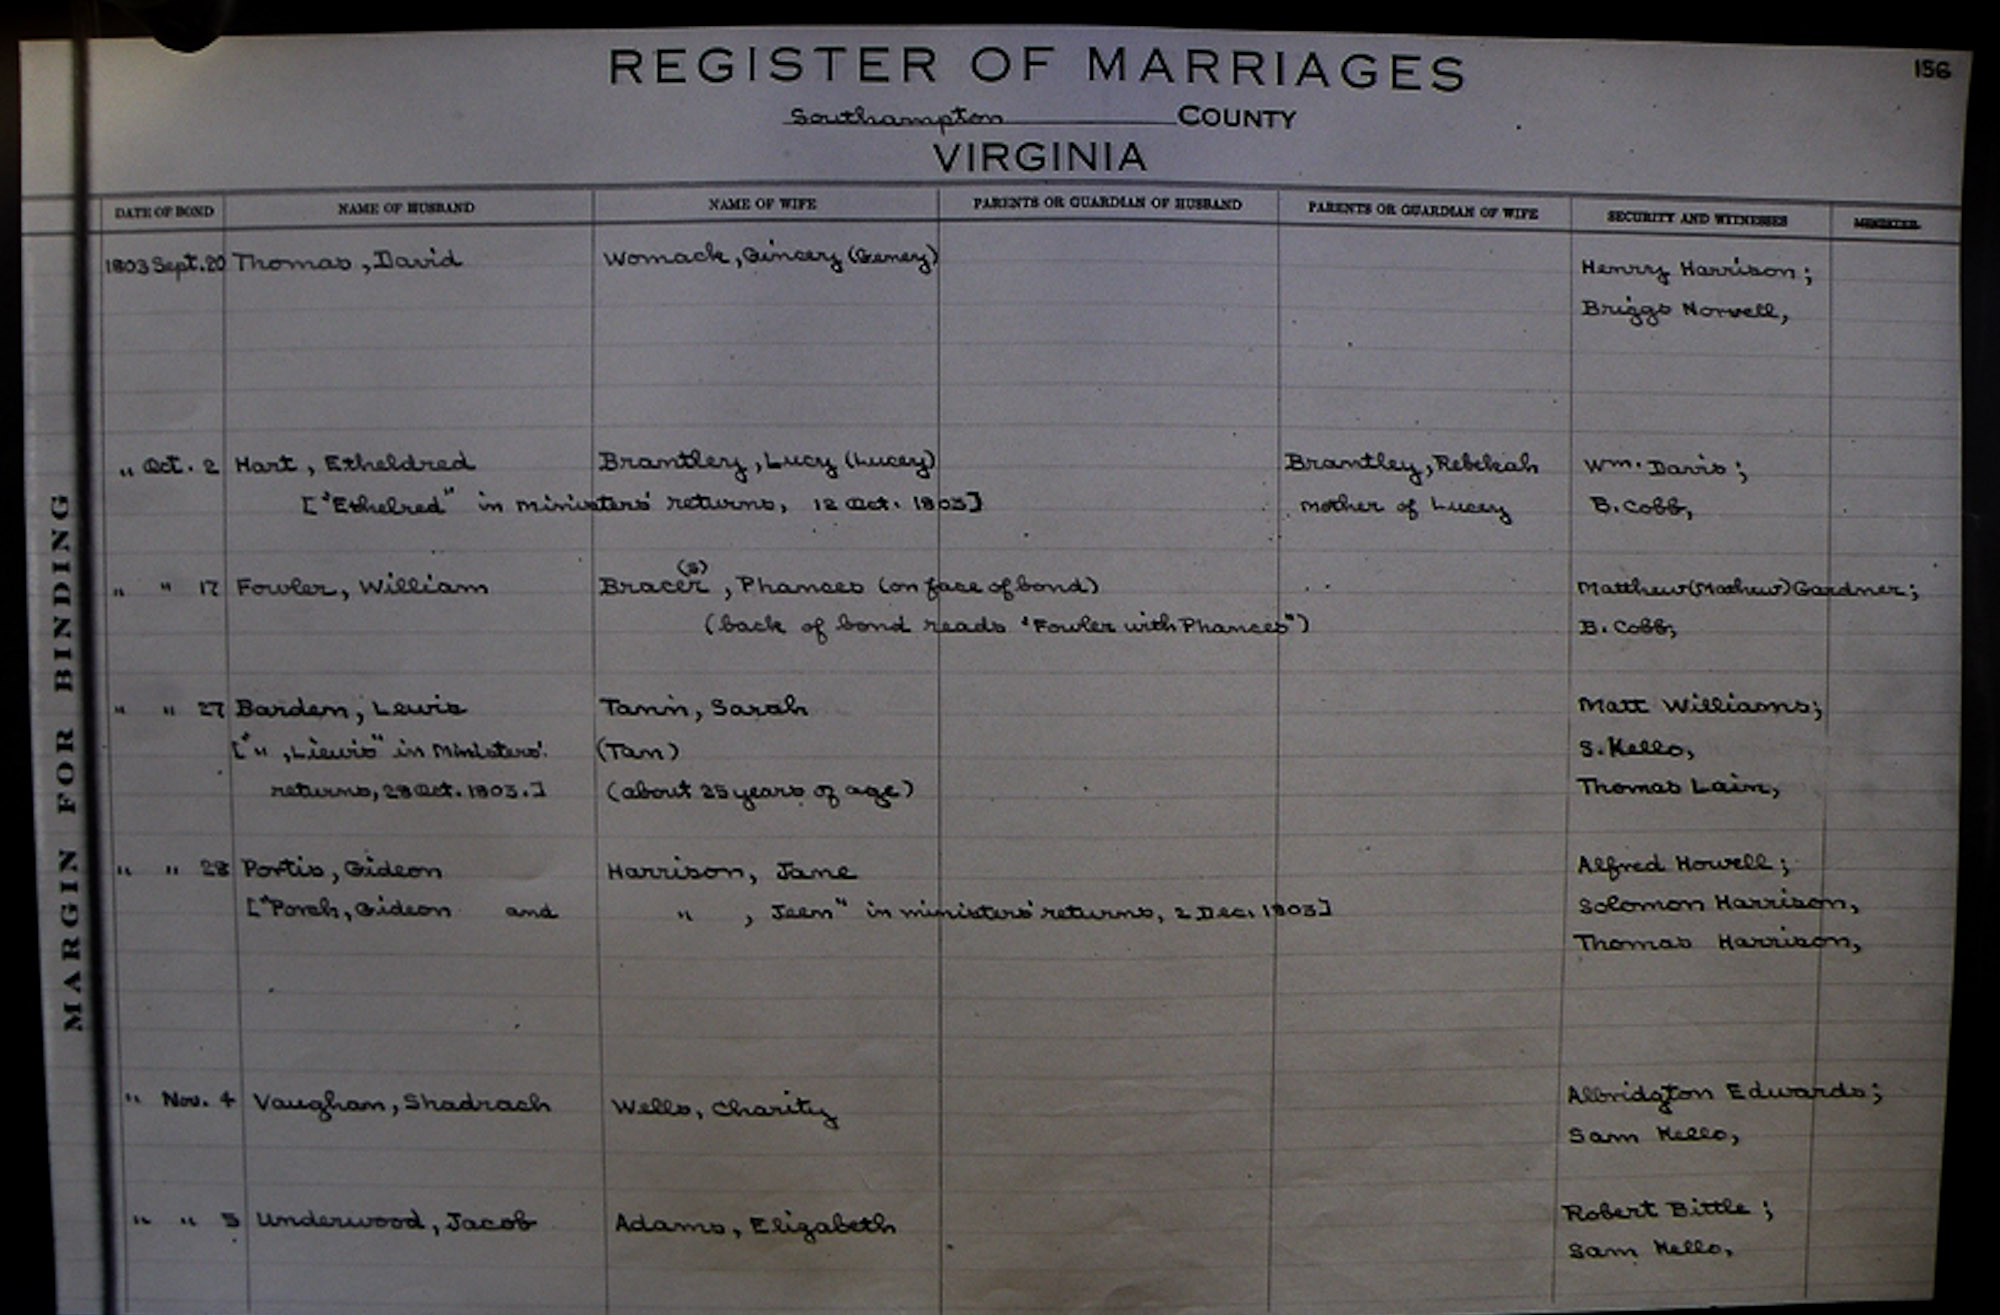 156
REGISTER OF MARRIAGES
Southampton COUNTY
VIRGINIA
MARGIN FOR BINDING
DATE OF BOND NAME OF HUSBAND NAME OF WIFE PARENTS OR GUARDIAN OF HUSBAND PARENTS OR GUARDIAN OF WIFE SECURITY AND WITNESSES MINISTER
1803 Sept. 20 Thomas, David Womack, Gincey (Gemey) Henry Harrison;
Briggs Norvell,
" Oct. 2 Hart, Etheldred Brantley, Lucy (Lucey) Brantley, Rebekah Wm. Davis;
["Ethelred" in ministers' returns, 12 Oct. 1803] mother of Lucey B. Cobb,
(s)
" " 17 Fowler, William Bracer, Phances (on face of bond) Matthew (Mathew) Gardner;
(back of bond reads "Fowler with Phances") B. Cobb,
" " 27 Barden, Lewis Tann, Sarah Matt Williams;
[" " , Liewis" in Ministers' (Tan) S. Kello,
returns, 29 Oct. 1803.] (about 25 years of age) Thomas Lain,
" " 28 Portis, Gideon Harrison, Jane Alfred Howell;
["Porch, Gideon and " , Jeen" in ministers' returns, 2 Dec. 1803] Solomon Harrison,
Thomas Harrison,
" Nov. 4 Vaughan, Shadrach Wells, Charity Albridgton Edwards;
Sam Kello,
" " 5 Underwood, Jacob Adams, Elizabeth Robert Bittle;
Sam Kello,